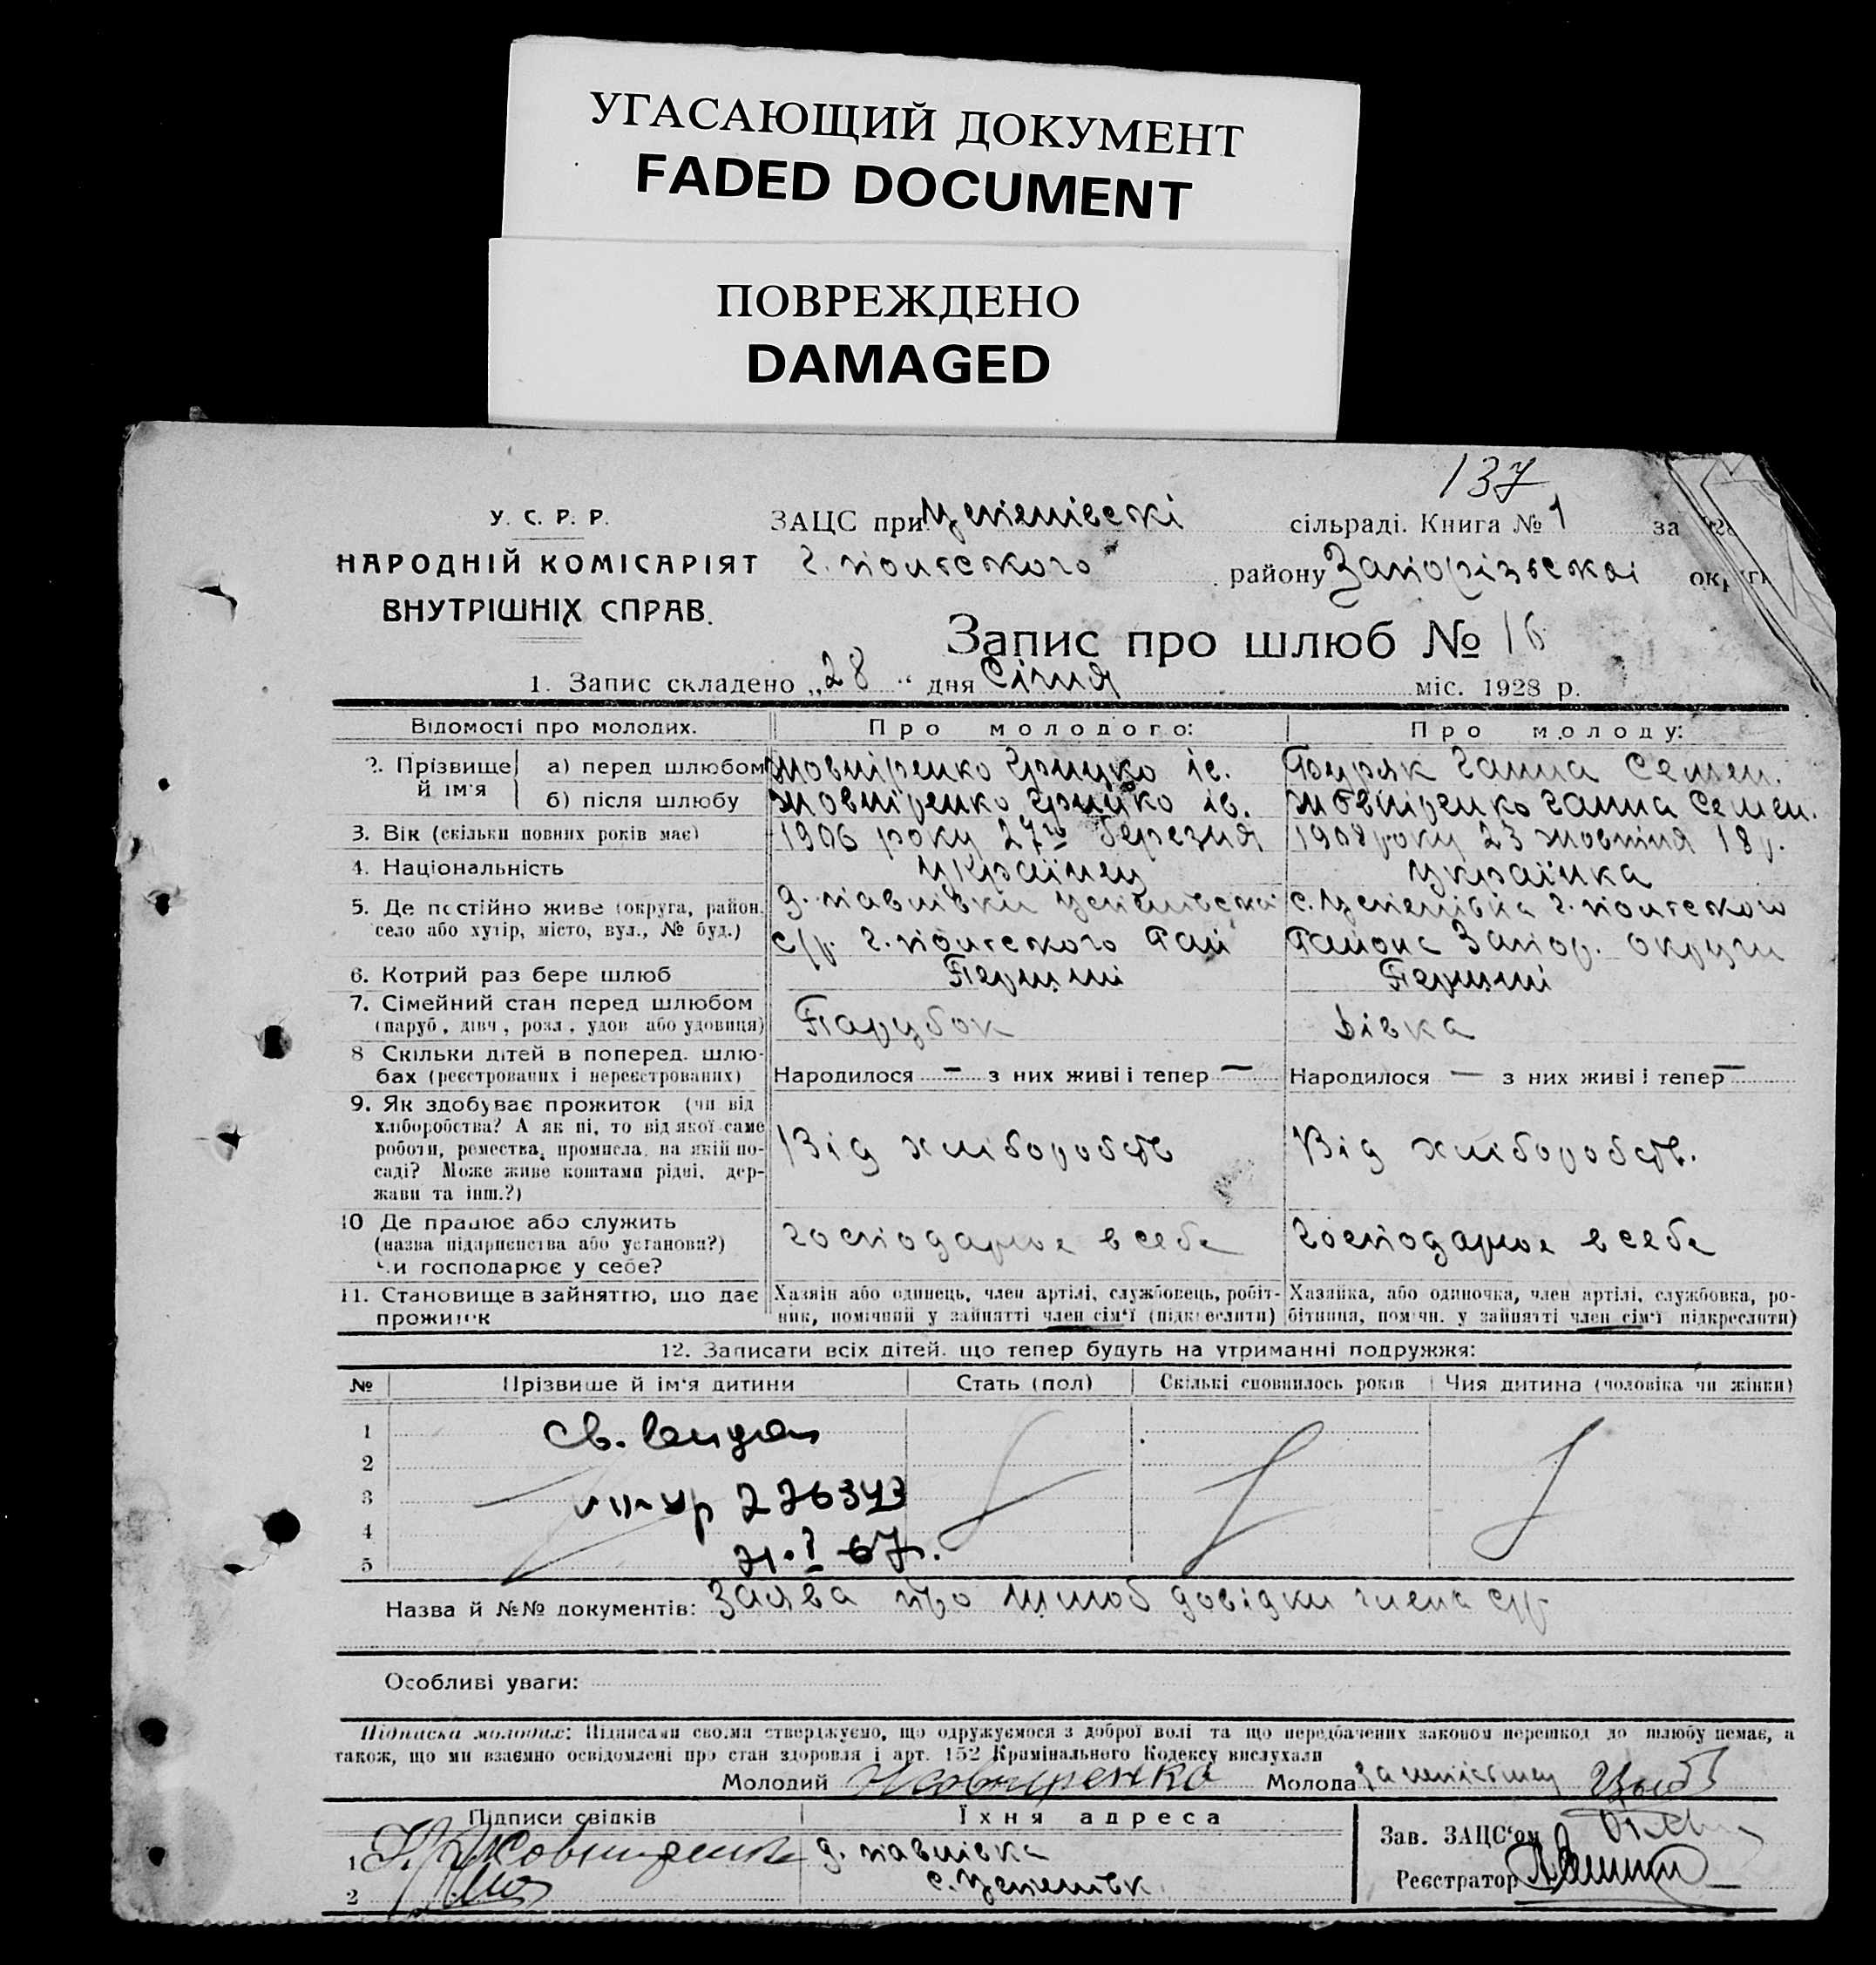 УГАСАЮЩИЙ ДОКУМЕНТ
FADED DOCUMENT
ПОВРЕЖДЕНО
DAMAGED
137
У. С. Р. Р.
НАРОДНІЙ КОМІСАРІЯТ
ВНУТРІШНІХ СПРАВ.
ЗАЦС при сільраді. Книга № 1 за
району Запорізькоі
Запис про шлюб № 16
1. Запис складено „28“ дня Січня міс. 1928 р.
Відомості про молодих. Про молодого: Про молоду:
2. Прізвище й ім'я
а) перед шлюбом Жовніренко Грицко Ів. Буряк Ганна Семен.
б) після шлюбу Жовніренко Грицко Ів. Жовніренко Ганна Семен.
3. Вік (скільки повних років має) 1906 року 27го березня 1908 року 23 жовтня 18 р.
4. Національність Українец Українка
5. Де постійно живе (округа, район, село або хутір, місто, вул., № буд.)
д. Павлівки
Запор. округи
6. Котрий раз бере шлюб Перший Перший
7. Сімейний стан перед шлюбом Парубок Дівка
(паруб., дівч., розл., удов. або удовиця)
8 Скільки дітей в поперед. шлю-
бах (реєстрованих і нереєстрованих) Народилося — з них живі і тепер — Народилося — з них живі і тепер —
9. Як здобуває прожиток (чи від
хліборобства? А як ні, то від якої саме
роботи, ремества, промисла, на якій по-
саді? Може живе коштами рідні, дер-
жави та інш.?)
Від хліборобств Від хліборобств.
10 Де працює або служить
(назва підприємства або установи?)
Чи господарює у себе?
Господарює в себе Господарює в себе
11. Становище в зайняттю, що дає
прожиток
Хазяїн або одинець, член артілі, службовець, робіт-
ник, помічний у зайнятті член сім'ї (підкреслити)
Хазяйка, або одиночка, член артілі, службовка, ро-
бітниця, помічн. у зайнятті член сім'ї підкреслити)
12. Записати всіх дітей, що тепер будуть на утриманні подружжя:
№ Прізвище й ім'я дитини Стать (пол) Скількі сповнилось років Чия дитина (чоловіка чи жінки)
1
2
3 226343
4
5 67г.
Назва й №№ документів: Заява про шлюб довідки члена с/р
Особливі уваги:
Підписка молодих: Підписами своїми стверджуємо, що одружуємося з доброї волі та що передбачених законом перешкод до шлюбу немає, а
також, що ми взаємно освідомлені про стан здоровля і арт. 152 Кримінального Кодексу вислухали
Молодий Жовниренко Молода
Підписи свідків Їхня адреса
1 Жовниренко д. Павлівка
2
Зав. ЗАЦС'ом
Реєстратор